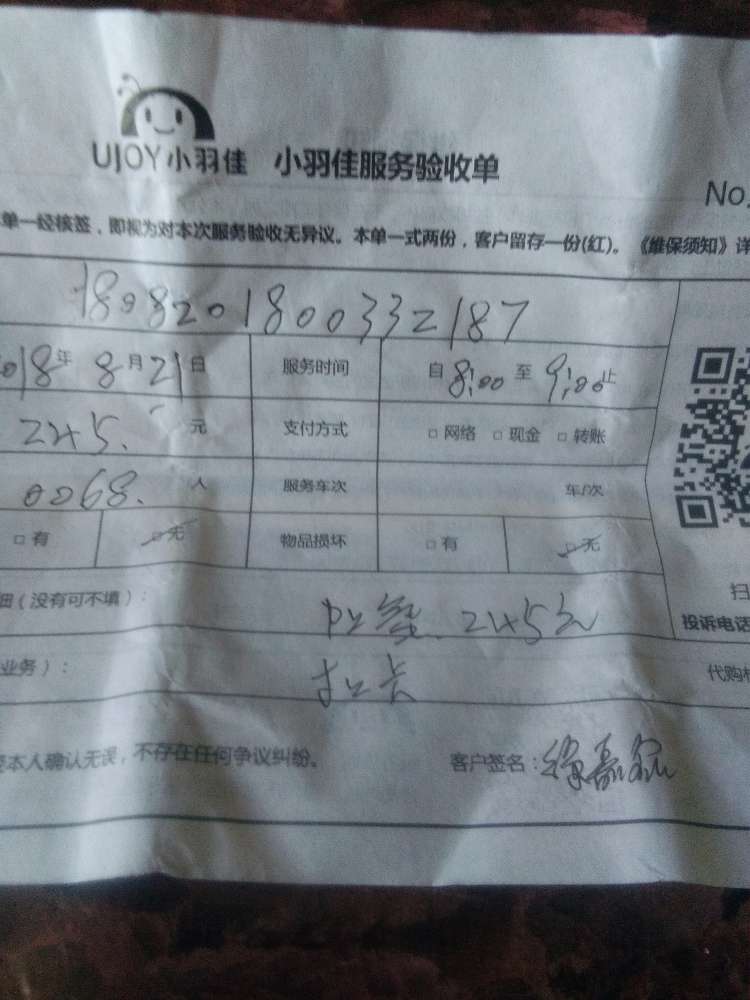 UJOY小羽佳 小羽佳服务验收单
No
单一经核签，即视为对本次服务验收无异议。本单一式两份，客户留存一份(红)。《维保须知》详
1808201800332187
018年8月21日 服务时间 自8:00至9:00止
245. 元 支付方式 □网络 □现金 □转账
0068. 人 服务车次 车/次
□有 □无 物品损坏 □有 □无
扫
细（没有可不填）： 245元
投诉电话
业务）： 扣卡
代购
本人确认无误，不存在任何争议纠纷。 客户签名：